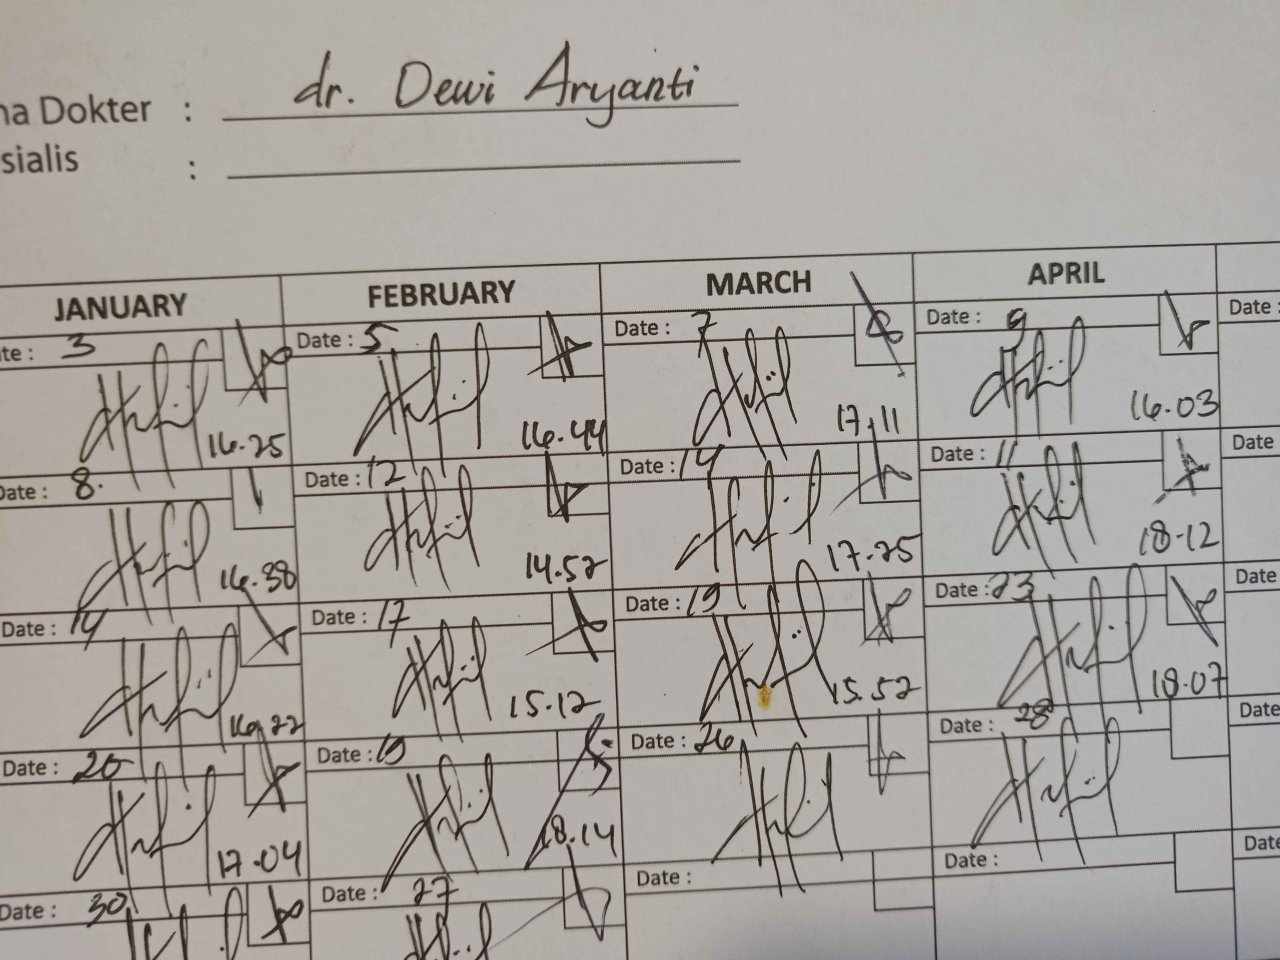 na Dokter : dr. Dewi Aryanti
sialis :
JANUARY FEBRUARY MARCH APRIL
te : 3 Date : 5 Date : 7 Date : 9 Date :
16.25 16.44 17.11 16.03
Date : 8. Date : 12 Date : 14 Date : 11 Date
16.38 14.52 17.25 18.12
Date : 14 Date : 17 Date : 19 Date : 23 Date
16.22 15.12 15.52 18.07
Date : 20 Date : 19 Date : 26 Date : 28 Date
17.04 18.14
Date : 30 Date : 27 Date : Date : Date